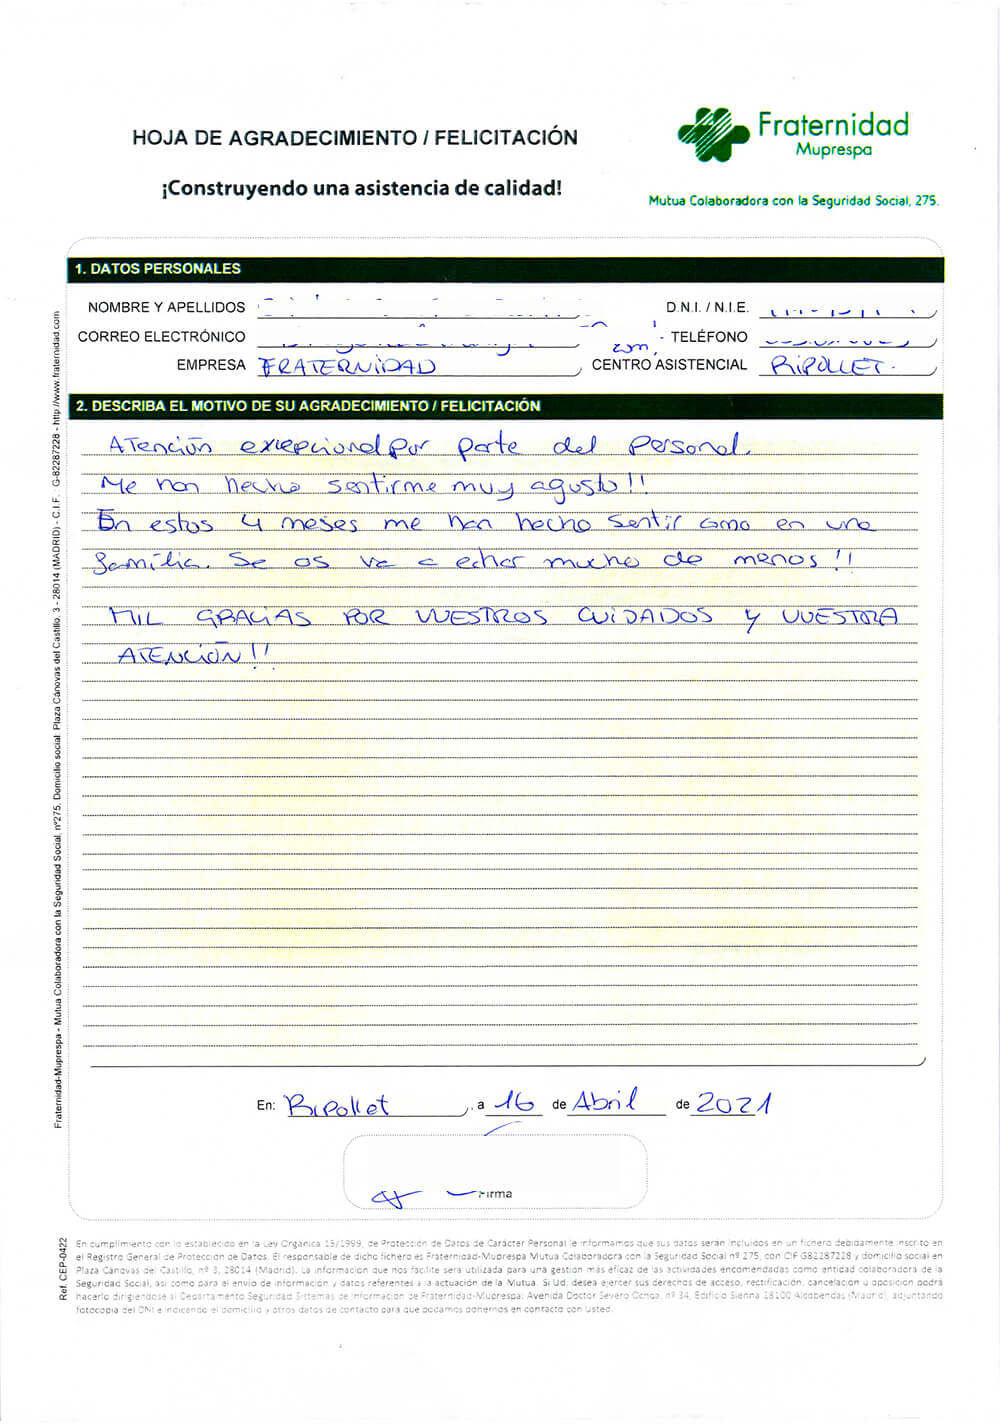 HOJA DE AGRADECIMIENTO / FELICITACIÓN
¡Construyendo una asistencia de calidad!
Fraternidad
Muprespa
Mutua Colaboradora con la Seguridad Social, 275.
1. DATOS PERSONALES
NOMBRE Y APELLIDOS
D.N.I. / N.I.E.
CORREO ELECTRÓNICO com
TELÉFONO
EMPRESA FRATERNIDAD
CENTRO ASISTENCIAL RIPOLLET.
2. DESCRIBA EL MOTIVO DE SU AGRADECIMIENTO / FELICITACIÓN
Atención excepcional por parte del personal.
Me han hecho sentirme muy agusto!!
En estos 4 meses me han hecho sentir como en una
familia. Se os va a echar mucho de menos!!
MIL GRACIAS POR VUESTROS CUIDADOS Y VUESTRA
ATENCIÓN!!
En: Ripollet, a 16 de Abril de 2021
Firma
Fraternidad-Muprespa - Mutua Colaboradora con la Seguridad Social, nº275. Domicilio social: Plaza Cánovas del Castillo, 3 - 28014 (MADRID) - C.I.F.: G-82287228 - http://www.fraternidad.com
Ref. CEP-0422
En cumplimiento con lo establecido en la Ley Orgánica 15/1999, de Protección de Datos de Carácter Personal le informamos que sus datos serán incluidos en un fichero debidamente inscrito en
el Registro General de Protección de Datos. El responsable de dicho fichero es Fraternidad-Muprespa Mutua Colaboradora con la Seguridad Social nº 275, con CIF G82287228 y domicilio social en
Plaza Cánovas del Castillo, nº 3, 28014 (Madrid). La información que nos facilite será utilizada para una gestión más eficaz de las actividades encomendadas como entidad colaboradora de la
Seguridad Social, así como para el envío de información y datos referentes a la actuación de la Mutua. Si Ud. desea ejercer sus derechos de acceso, rectificación, cancelación u oposición podrá
hacerlo dirigiéndose al Departamento Seguridad Sistemas de Información de Fraternidad-Muprespa: Avenida Doctor Severo Ochoa, nº 34, Edificio Sienna 28100 Alcobendas (Madrid), adjuntando
fotocopia del DNI e indicando el domicilio y otros datos de contacto para que podamos ponernos en contacto con Usted.